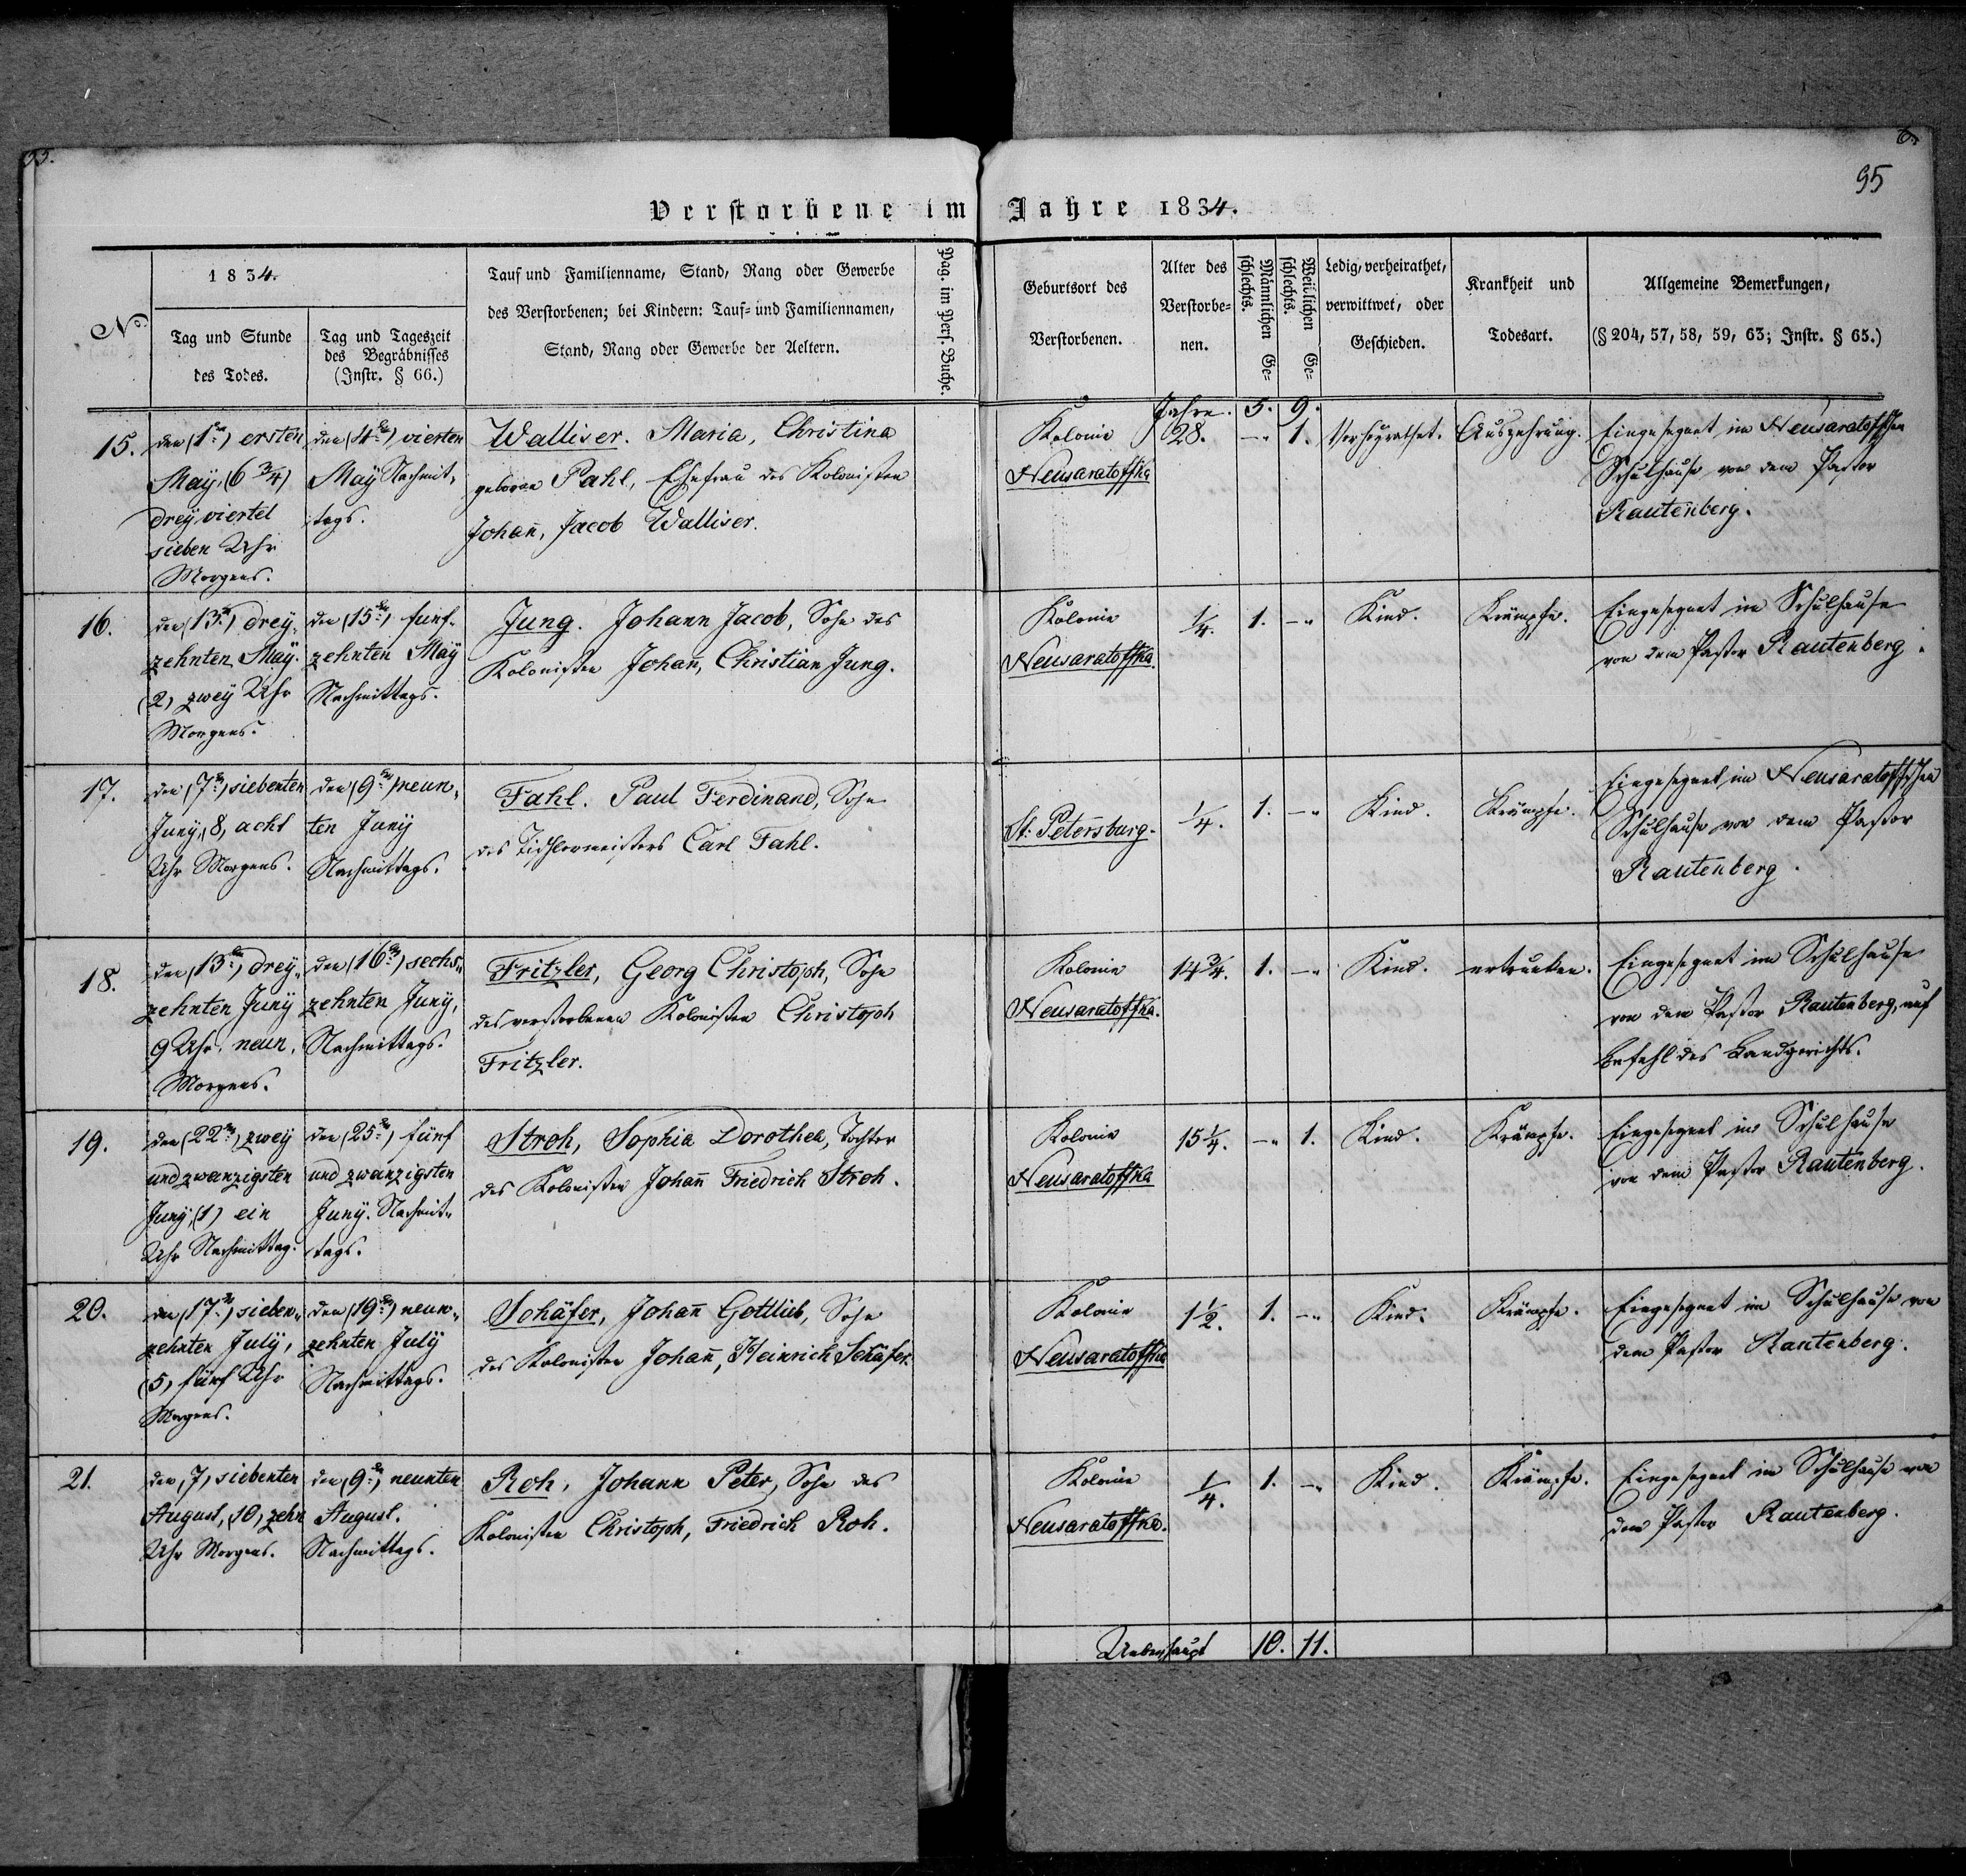 95
Verstorbene im Jahre 1834.
No.
1834.
Tag und Stunde
des Todes.
Tag und Tageszeit
des Begräbnisses
(Instr. § 66.)
Tauf und Familienname, Stand, Rang oder Gewerbe
des Verstorbenen; bei Kindern: Tauf- und Familiennamen,
Stand, Rang oder Gewerbe der Aeltern.
Pag. im Pers. Buche.
Geburtsort des
Verstorbenen.
Alter des
Verstorbe-
nen.
Männlichen Ge-
schlechts.
Weiblichen Ge-
schlechts.
Ledig, verheirathet,
verwittwet, oder
Geschieden.
Krankheit und
Todesart.
Allgemeine Bemerkungen,
(§ 204, 57, 58, 59, 63; Instr. § 65.)
Jahre. 5. 9.
15.
den (1ten) ersten
May, (6 3/4)
drey viertel
sieben Uhr
Morgens.
den (4ten) vierten
May Nachmit-
tags.
Walliser. Maria, Christina
geborne Pahl, Ehefrau des Kolonisten
Johañ, Jacob Walliser.
Kolonie
Neusaratoffka
28.
-"
1.
Verheyrathet.
Auszehrung.
Eingesegnet im Neusaratoffschen
Schulhause von dem Pastor
Rautenberg.
16.
den (13ten) drey-
zehnten May.
(2) zwey Uhr
Morgens.
den (15ten) funf-
zehnten May
Nachmittags.
Jung. Johann Jacob, Sohn des
Kolonisten Johañ, Christian Jung.
Kolonie
Neusaratoffka.
1/4.
1.
-"
Kind.
Krämpfe.
Eingesegnet im Schulhause
von dem Pastor Rautenberg.
17.
den (7ten) siebenten
Juny, (8, acht
Uhr Morgens.
den (9ten) neun-
ten Juny
Nachmittags.
Fahl. Paul Ferdinand, Sohn
des Tischlermeisters Carl Fahl.
St: Petersburg.
1/4.
1.
-"
Kind.
Krämpfe.
Eingesegnet im Neusaratoffschen
Schulhause von dem Pastor
Rautenberg.
18.
den (13ten) drey-
zehnten Juny
9 Uhr. neun,
Morgens.
den (16ten) sechs-
zehnten Juny,
Nachmittags.
Fritzler, Georg Christoph, Sohn
des verstorbenen Kolonisten Christoph
Fritzler.
Kolonie
Neusaratoffka.
14 3/4.
1.
-"
Kind.
ertrunken.
Eingesegnet im Schulhause
von dem Pastor Rautenberg, auf
Befehl des Landgerichts.
19.
den (22ten) zwey
und zwanzigsten
Juny, (1) ein
Uhr Nachmittag.
den (25ten) fünf
und zwanzigsten
Juny. Nachmit-
tags.
Stroh, Sophia Dorothea, Tochter
des Kolonisten Johañ Friedrich Stroh.
Kolonie
Neusaratoffka
15 1/4.
-"
1.
Kind.
Krämpfe.
Eingesegnet im Schulhause
von dem Pastor Rautenberg.
20.
den (17ten) sieben-
zehnten July,
(5) fünf Uhr
Morgens.
den (19ten) neun-
zehnten July
Nachmittags.
Schäfer, Johañ Gottlieb, Sohn
des Kolonisten Johañ, Heinrich Schäfer.
Kolonie
Neusaratoffka
1 1/2.
1.
-"
Kind.
Krämpfe.
Eingesegnet im Schulhause von
dem Pastor Rautenberg.
21.
den (7) siebenten
August, (10) zehn
Uhr Morgens.
den (9ten) neunten
August.
Nachmittags.
Roh, Johann Peter, Sohn des
Kolonisten Christoph, Friedrich Roh.
Kolonie
Neusaratoffka.
1/4.
1.
-"
Kind.
Krämpfe.
Eingesegnet im Schulhause von
dem Pastor Rautenberg.
Ueberhaupt 10. 11.